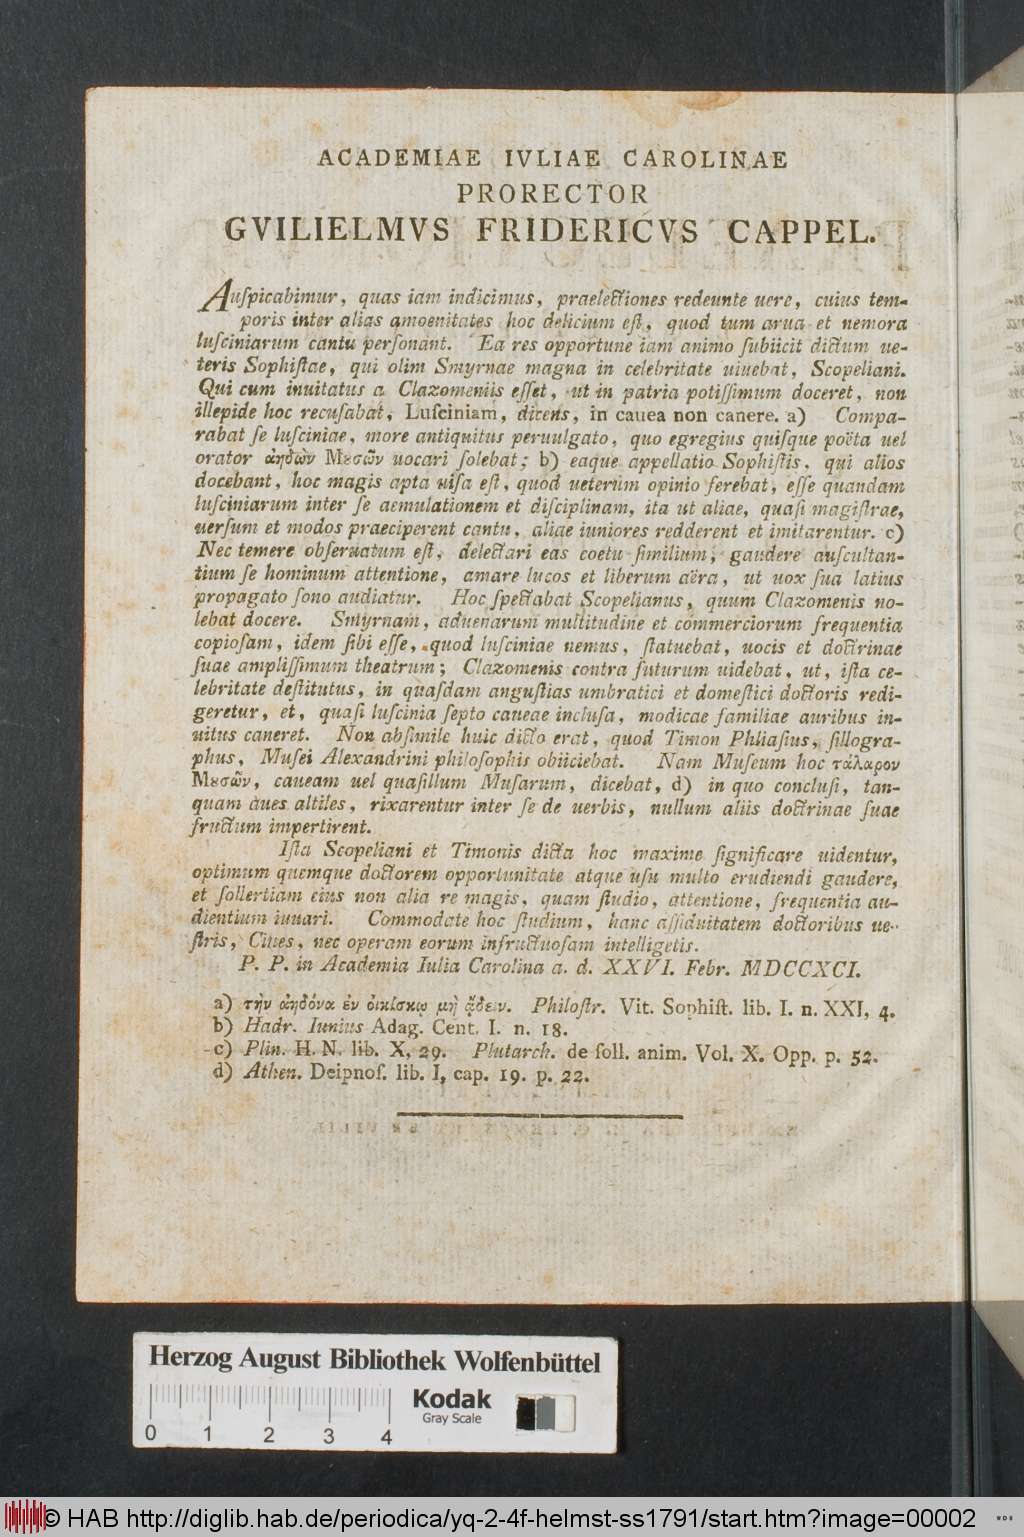 ACADEMIAE IVLIAE CAROLINAE
PRORECTOR
GVILIELMVS FRIDERICVS CAPPEL.
Auſpicabimur, quas iam indicimus, praelectiones redeunte uere, cuius tem-
poris inter alias amoenitates hoc delicium eſt, quod tum arua et nemora
luſciniarum cantu perſonant. Ea res opportune iam animo ſubiicit dictum ue-
teris Sophiſtae, qui olim Smyrnae magna in celebritate uiuebat, Scopeliani.
Qui cum inuitatus a Clazomeniis eſſet, ut in patria potiſſimum doceret, non
illepide hoc recuſabat, Luſciniam, dicens, in cauea non canere. a) Compa-
rabat ſe luſciniae, more antiquitus peruulgato, quo egregius quiſque poëta uel
orator ἀηδὼν Μȣσῶν uocari ſolebat; b) eaque appellatio Sophiſtis, qui alios
docebant, hoc magis apta uiſa eſt, quod ueterum opinio ferebat, eſſe quandam
luſciniarum inter ſe aemulationem et diſciplinam, ita ut aliae, quaſi magiſtrae,
uerſum et modos praeciperent cantu, aliae iuniores redderent et imitarentur. c)
Nec temere obſeruatum eſt, delectari eas coetu ſimilium, gaudere auſcultan-
tium ſe hominum attentione, amare lucos et liberum aëra, ut uox ſua latius
propagato ſono audiatur. Hoc ſpectabat Scopelianus, quum Clazomenis no-
lebat docere. Smyrnam, aduenarum multitudine et commerciorum frequentia
copioſam, idem ſibi eſſe, quod luſciniae nemus, ſtatuebat, uocis et doctrinae
ſuae ampliſſimum theatrum; Clazomenis contra futurum uidebat, ut, iſta ce-
lebritate deſtitutus, in quaſdam anguſtias umbratici et domeſtici doctoris redi-
geretur, et, quaſi luſcinia ſepto caueae incluſa, modicae familiae auribus in-
uitus caneret. Non abſimile huic dicto erat, quod Timon Phliaſius, ſillogra-
phus, Muſei Alexandrini philoſophis obiiciebat. Nam Muſeum hoc τάλαρον
Μȣσῶν, caueam uel quaſillum Muſarum, dicebat, d) in quo concluſi, tan-
quam aues altiles, rixarentur inter ſe de uerbis, nullum aliis doctrinae ſuae
fructum impertirent.
Iſta Scopeliani et Timonis dicta hoc maxime ſignificare uidentur,
optimum quemque doctorem opportunitate atque uſu multo erudiendi gaudere,
et ſollertiam eius non alia re magis, quam ſtudio, attentione, frequentia au-
dientium iuuari. Commodate hoc ſtudium, hanc aſſiduitatem doctoribus ue-
ſtris, Ciues, nec operam eorum infructuoſam intelligetis.
P. P. in Academia Iulia Carolina a. d. XXVI. Febr. MDCCXCI.
a) τὴν ἀηδόνα ἐν οἰκίσκῳ μὴ ᾄδειν. Philoſtr. Vit. Sophiſt. lib. I. n. XXI, 4.
b) Hadr. Iunius Adag. Cent. I. n. 18.
c) Plin. H. N. lib. X, 29. Plutarch. de ſoll. anim. Vol. X. Opp. p. 52.
d) Athen. Deipnoſ. lib. I, cap. 19. p. 22.
Herzog August Bibliothek Wolfenbüttel
Kodak
Gray Scale
0 1 2 3 4
© HAB http://diglib.hab.de/periodica/yq-2-4f-helmst-ss1791/start.htm?image=00002